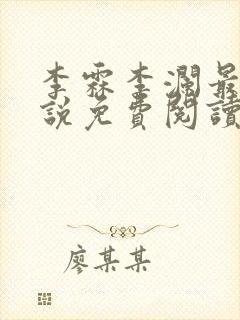 李霖李瀾最
說免費閱讀
廖某某